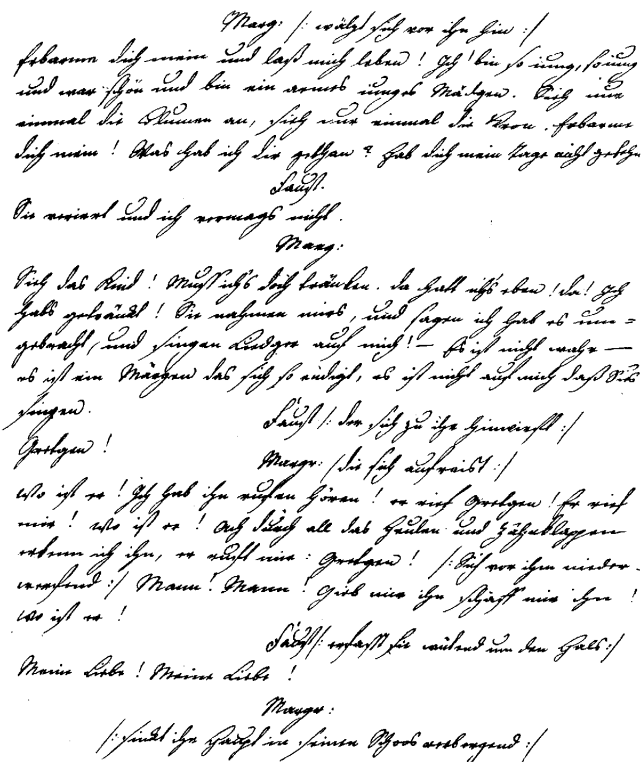 Marg: /: wälzt sich vor ihn hin :/
Erbarme dich mein und laß mich leben! Ich bin so iung, so iung
und war schön und bin ein armes iunges Mädgen. Sieh nur
einmal die Blumen an, sieh nur einmal die Kron. Erbarme
dich mein! Was hab ich dir gethan? Hab dich mein Tage nicht gesehn
Faust.
Sie verirrt und ich vermags nicht.
Marg:
Sieh das Kind! Muss ich's doch tränken. Da hatt ich's eben! Da! Ich
habs getränckt! Sie nahmen mirs, und sagen ich hab es um=
gebracht, und singen Liedger auf mich! – Es ist nicht wahr –
es ist ein Märgen das sich so endigt, es ist nicht auf mich daß Sies
singen.
Faust /: der sich zu ihr hinwirft :/
Gretgen!
Margr: /: die sich aufreist :/
Wo ist er! Ich hab ihn rufen hören! er rief Gretgen! Er rief
mir! Wo ist er! Ach durch all das Heulen und Zähnklappen
erkenn ich ihn, er ruft mir: Gretgen! /: Sich vor ihm nieder-
werfend :/ Mann! Mann! Gieb mir ihn schaff mir ihn!
Wo ist er!
Faust /: erfasst sie wütend um den Hals :/
Meine Liebe! Meine Liebe!
Margr:
/: sinkt ihr Haupt in seinen Schoos verbergend :/